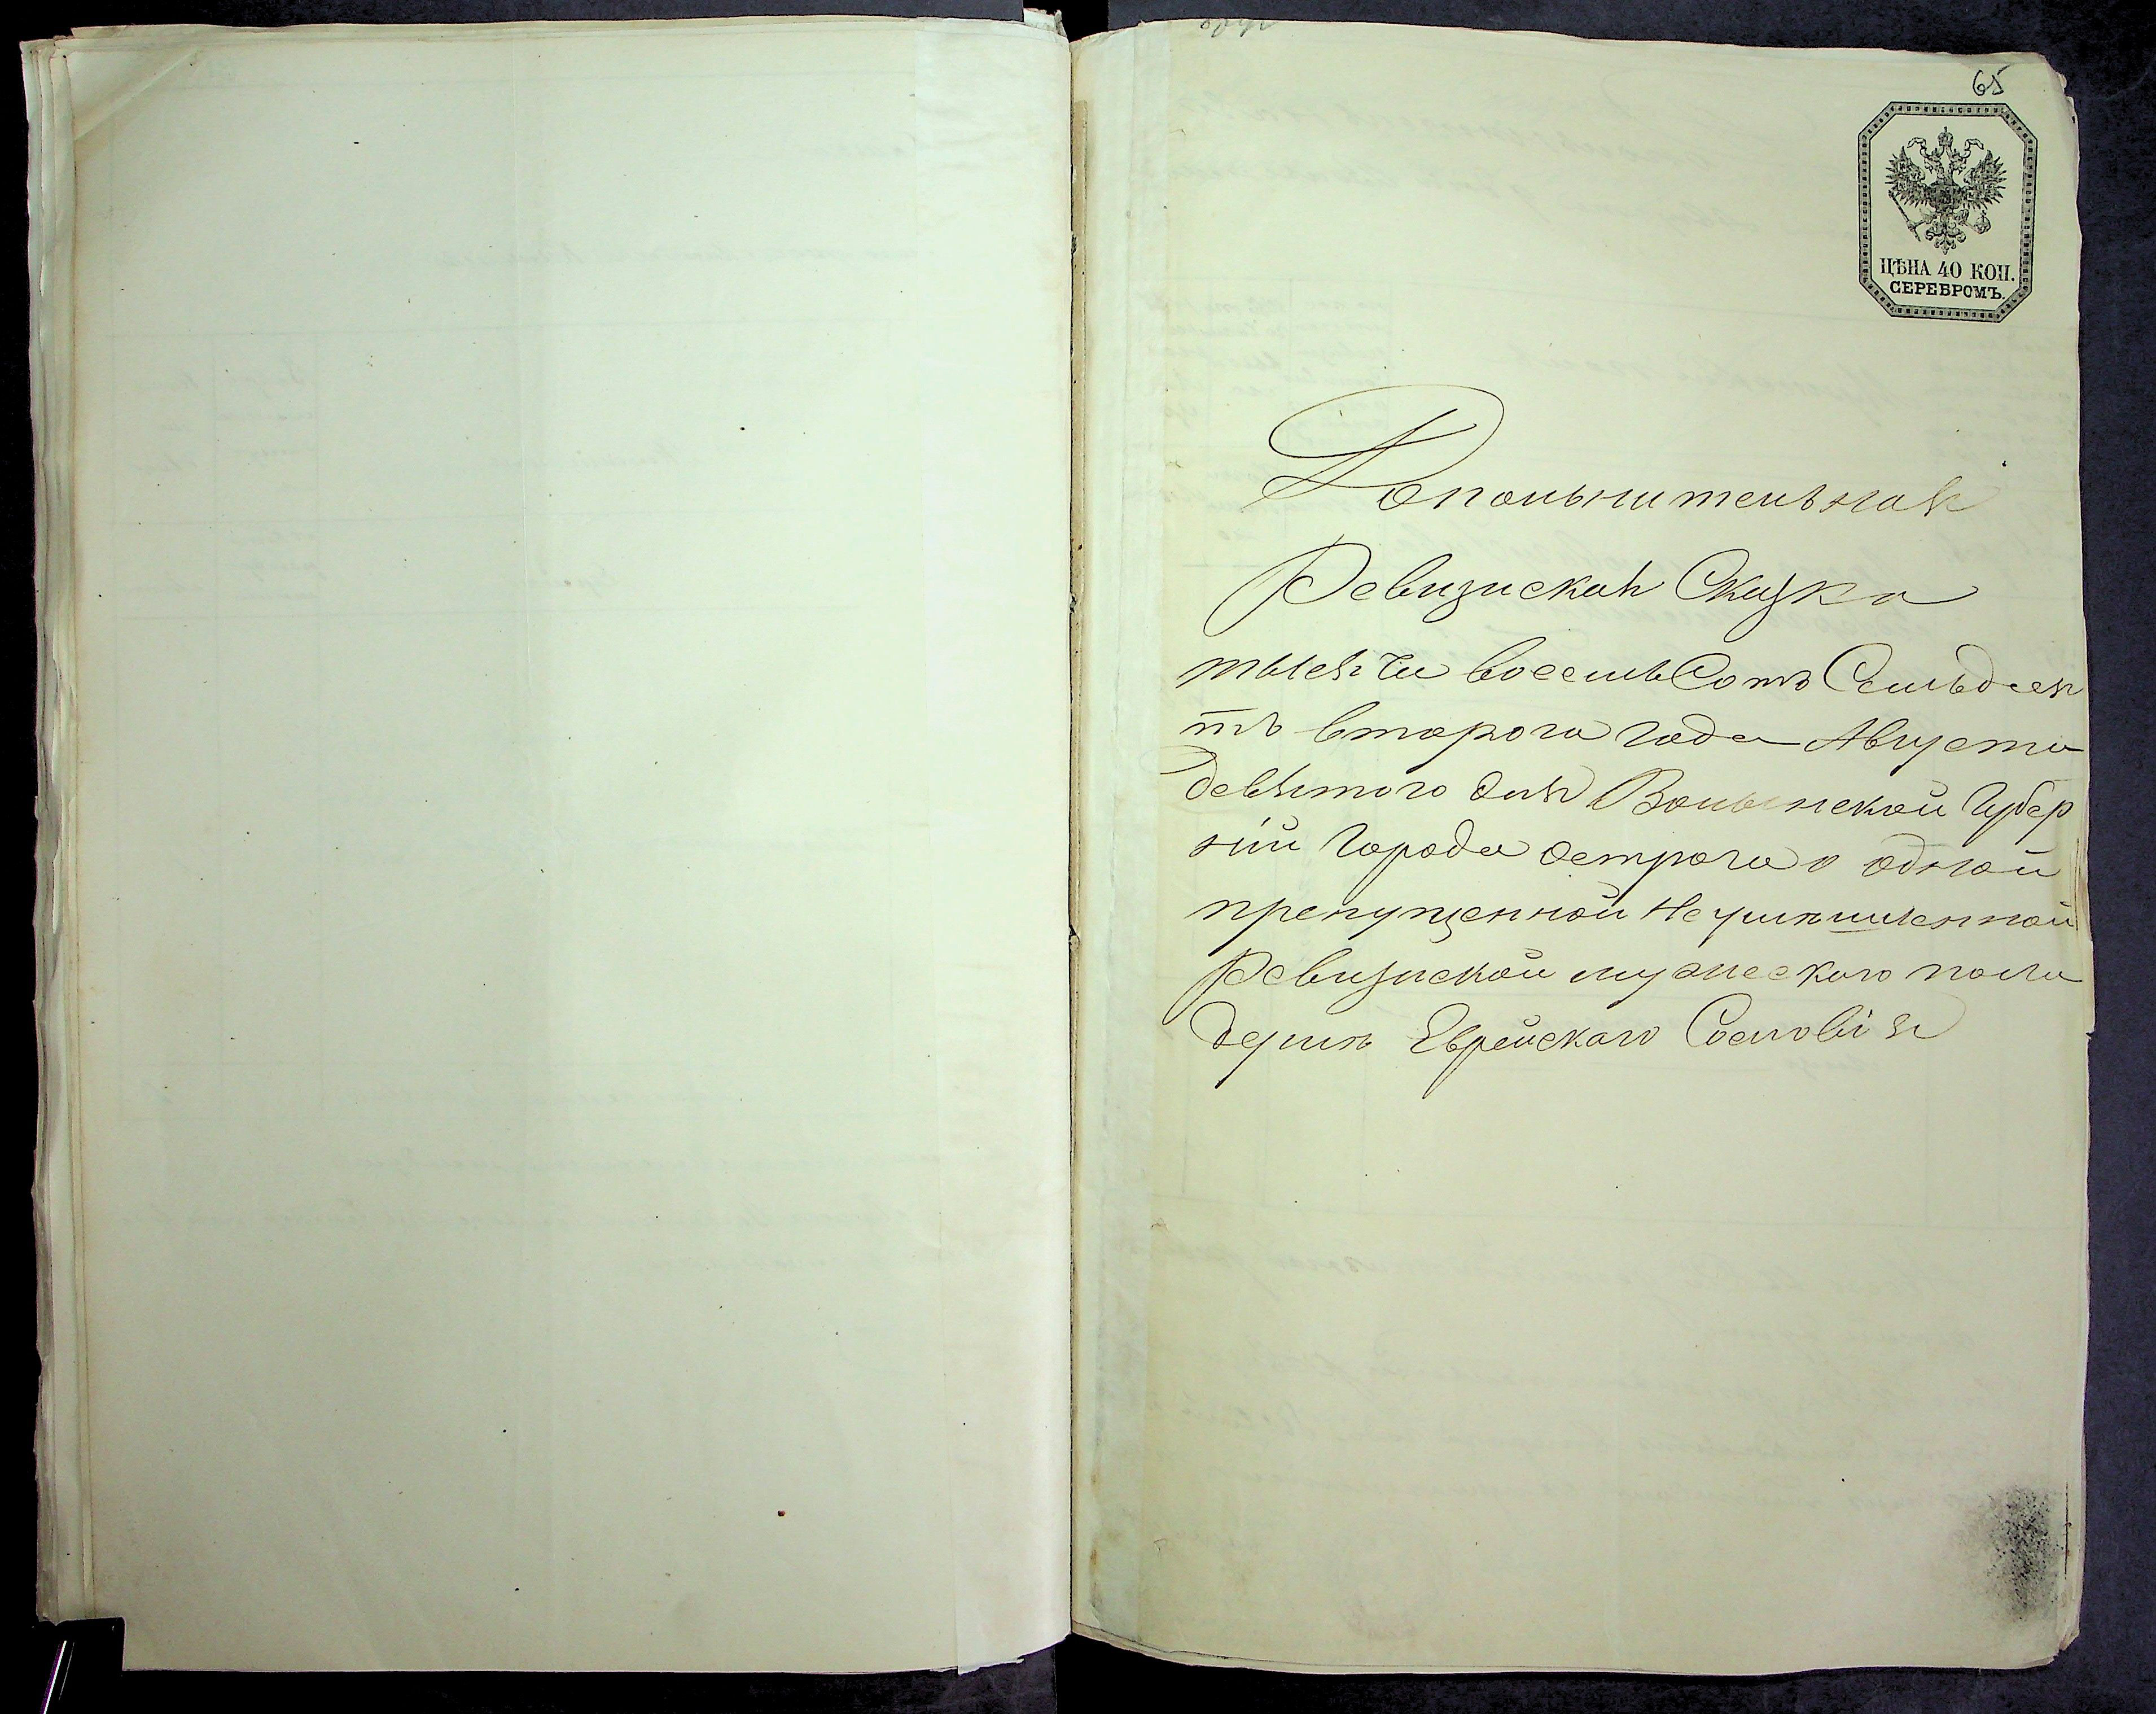 65
ЦѢНА 40 КОП.
СЕРЕБРОМЪ.
Допольнительная
Ревизиская Сказка
тысячи восемьСотъ Семьдеся
тъ второго года Августа
девятого дня Волынской Губер
ніи Города Острога о одной
препущенной Не
Ревизиской мужескаго пола
душѣ Еврейскаго Сословія